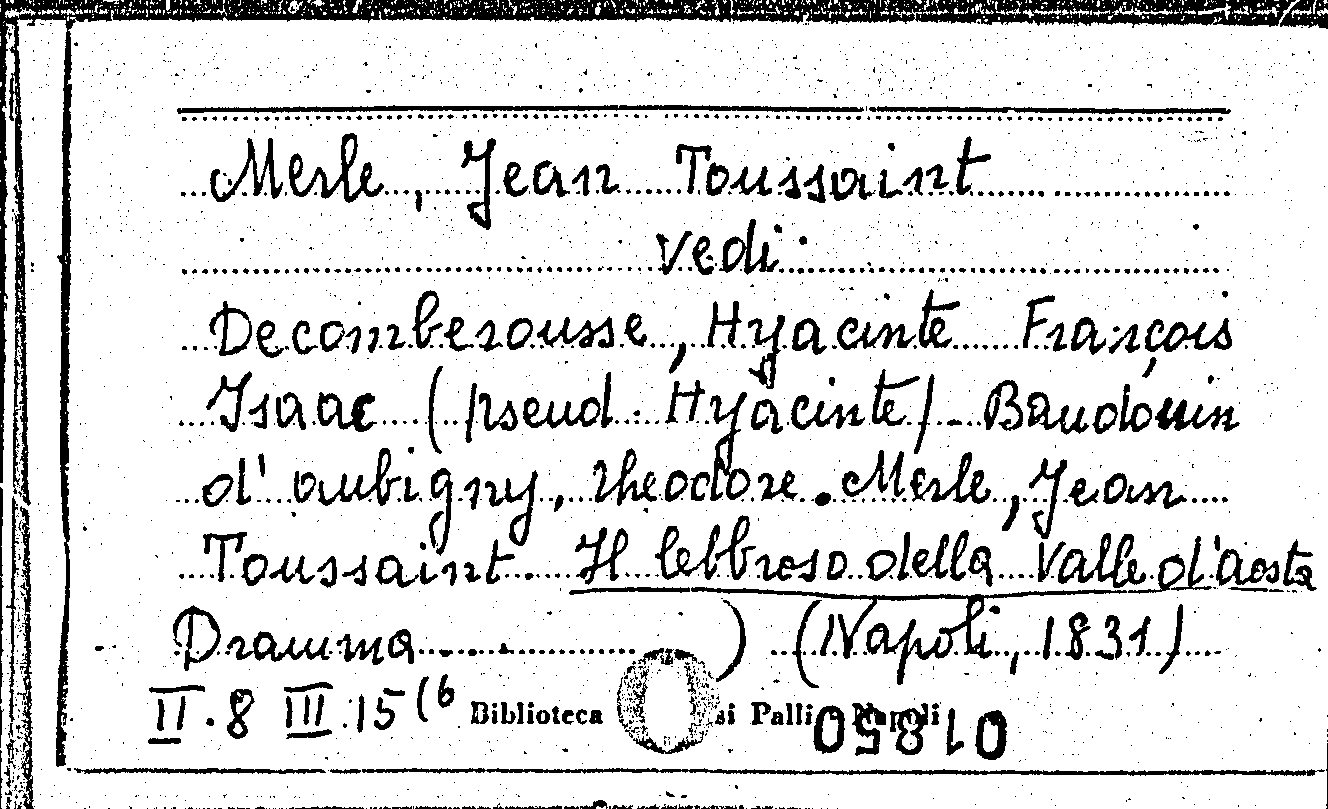 Merle, Jean Toussaint
vedi:
Decomberousse, Hyacinte François
Isaac (pseud. Hyacinte) - Baudouin
d'aubigny, Theodore. Merle, Jean
Toussaint. Il lebbroso della Valle d'aosta
Dramma..........) (Napoli, 1831)
II.8 III.15(6 Biblioteca si Palli Napoli
01850